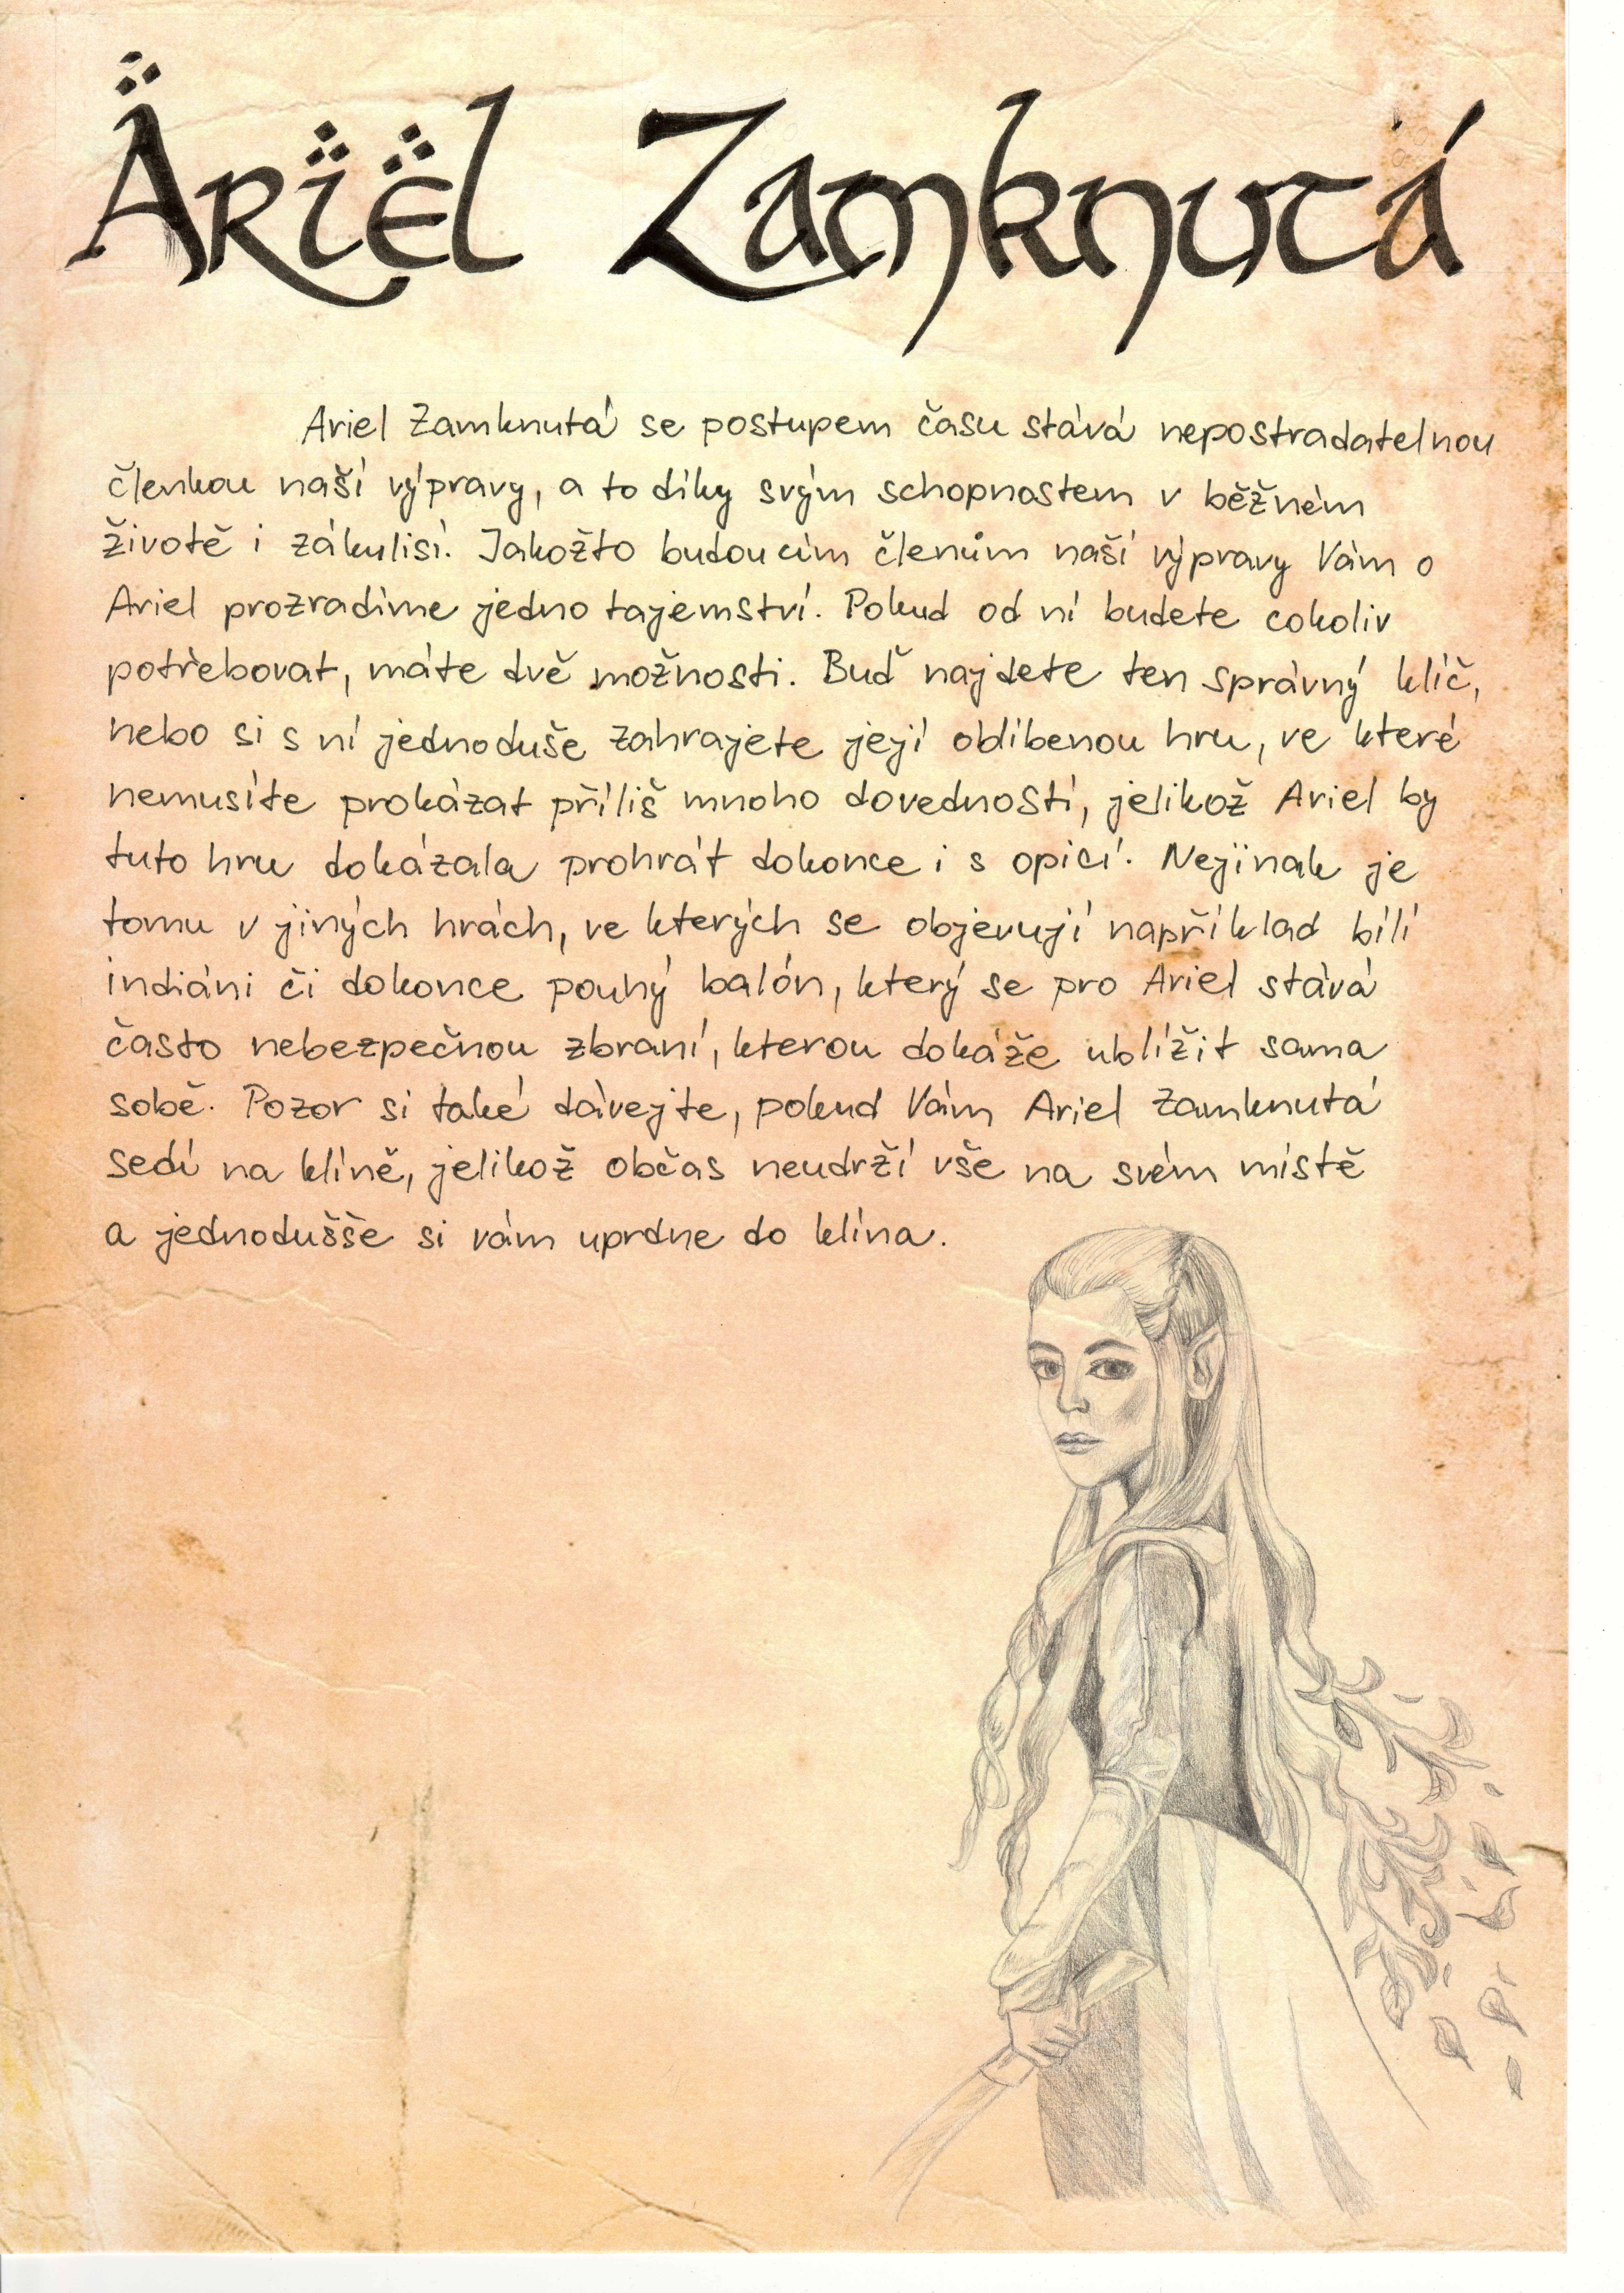 Äriël Zamknutá
Ariel Zamknutá se postupem času stává nepostradatelnou
členkou naší výpravy, a to díky svým schopnostem v běžném
životě i zákulisí. Jakožto budoucím členům naší výpravy Vám o
Ariel prozradíme jedno tajemství. Pokud od ní budete cokoliv
potřebovat, máte dvě možnosti. Buď najdete ten správný klíč,
nebo si s ní jednoduše zahrajete její oblíbenou hru, ve které
nemusíte prokázat příliš mnoho dovedností, jelikož Ariel by
tuto hru dokázala prohrát dokonce i s opicí. Nejinak je
tomu v jiných hrách, ve kterých se objevují například bílí
indiáni či dokonce pouhý balón, který se pro Ariel stává
často nebezpečnou zbraní, kterou dokáže ublížit sama
sobě. Pozor si také dávejte, pokud Vám Ariel Zamknutá
sedí na klíně, jelikož občas neudrží vše na svém místě
a jednodušše si vám uprdne do klína.